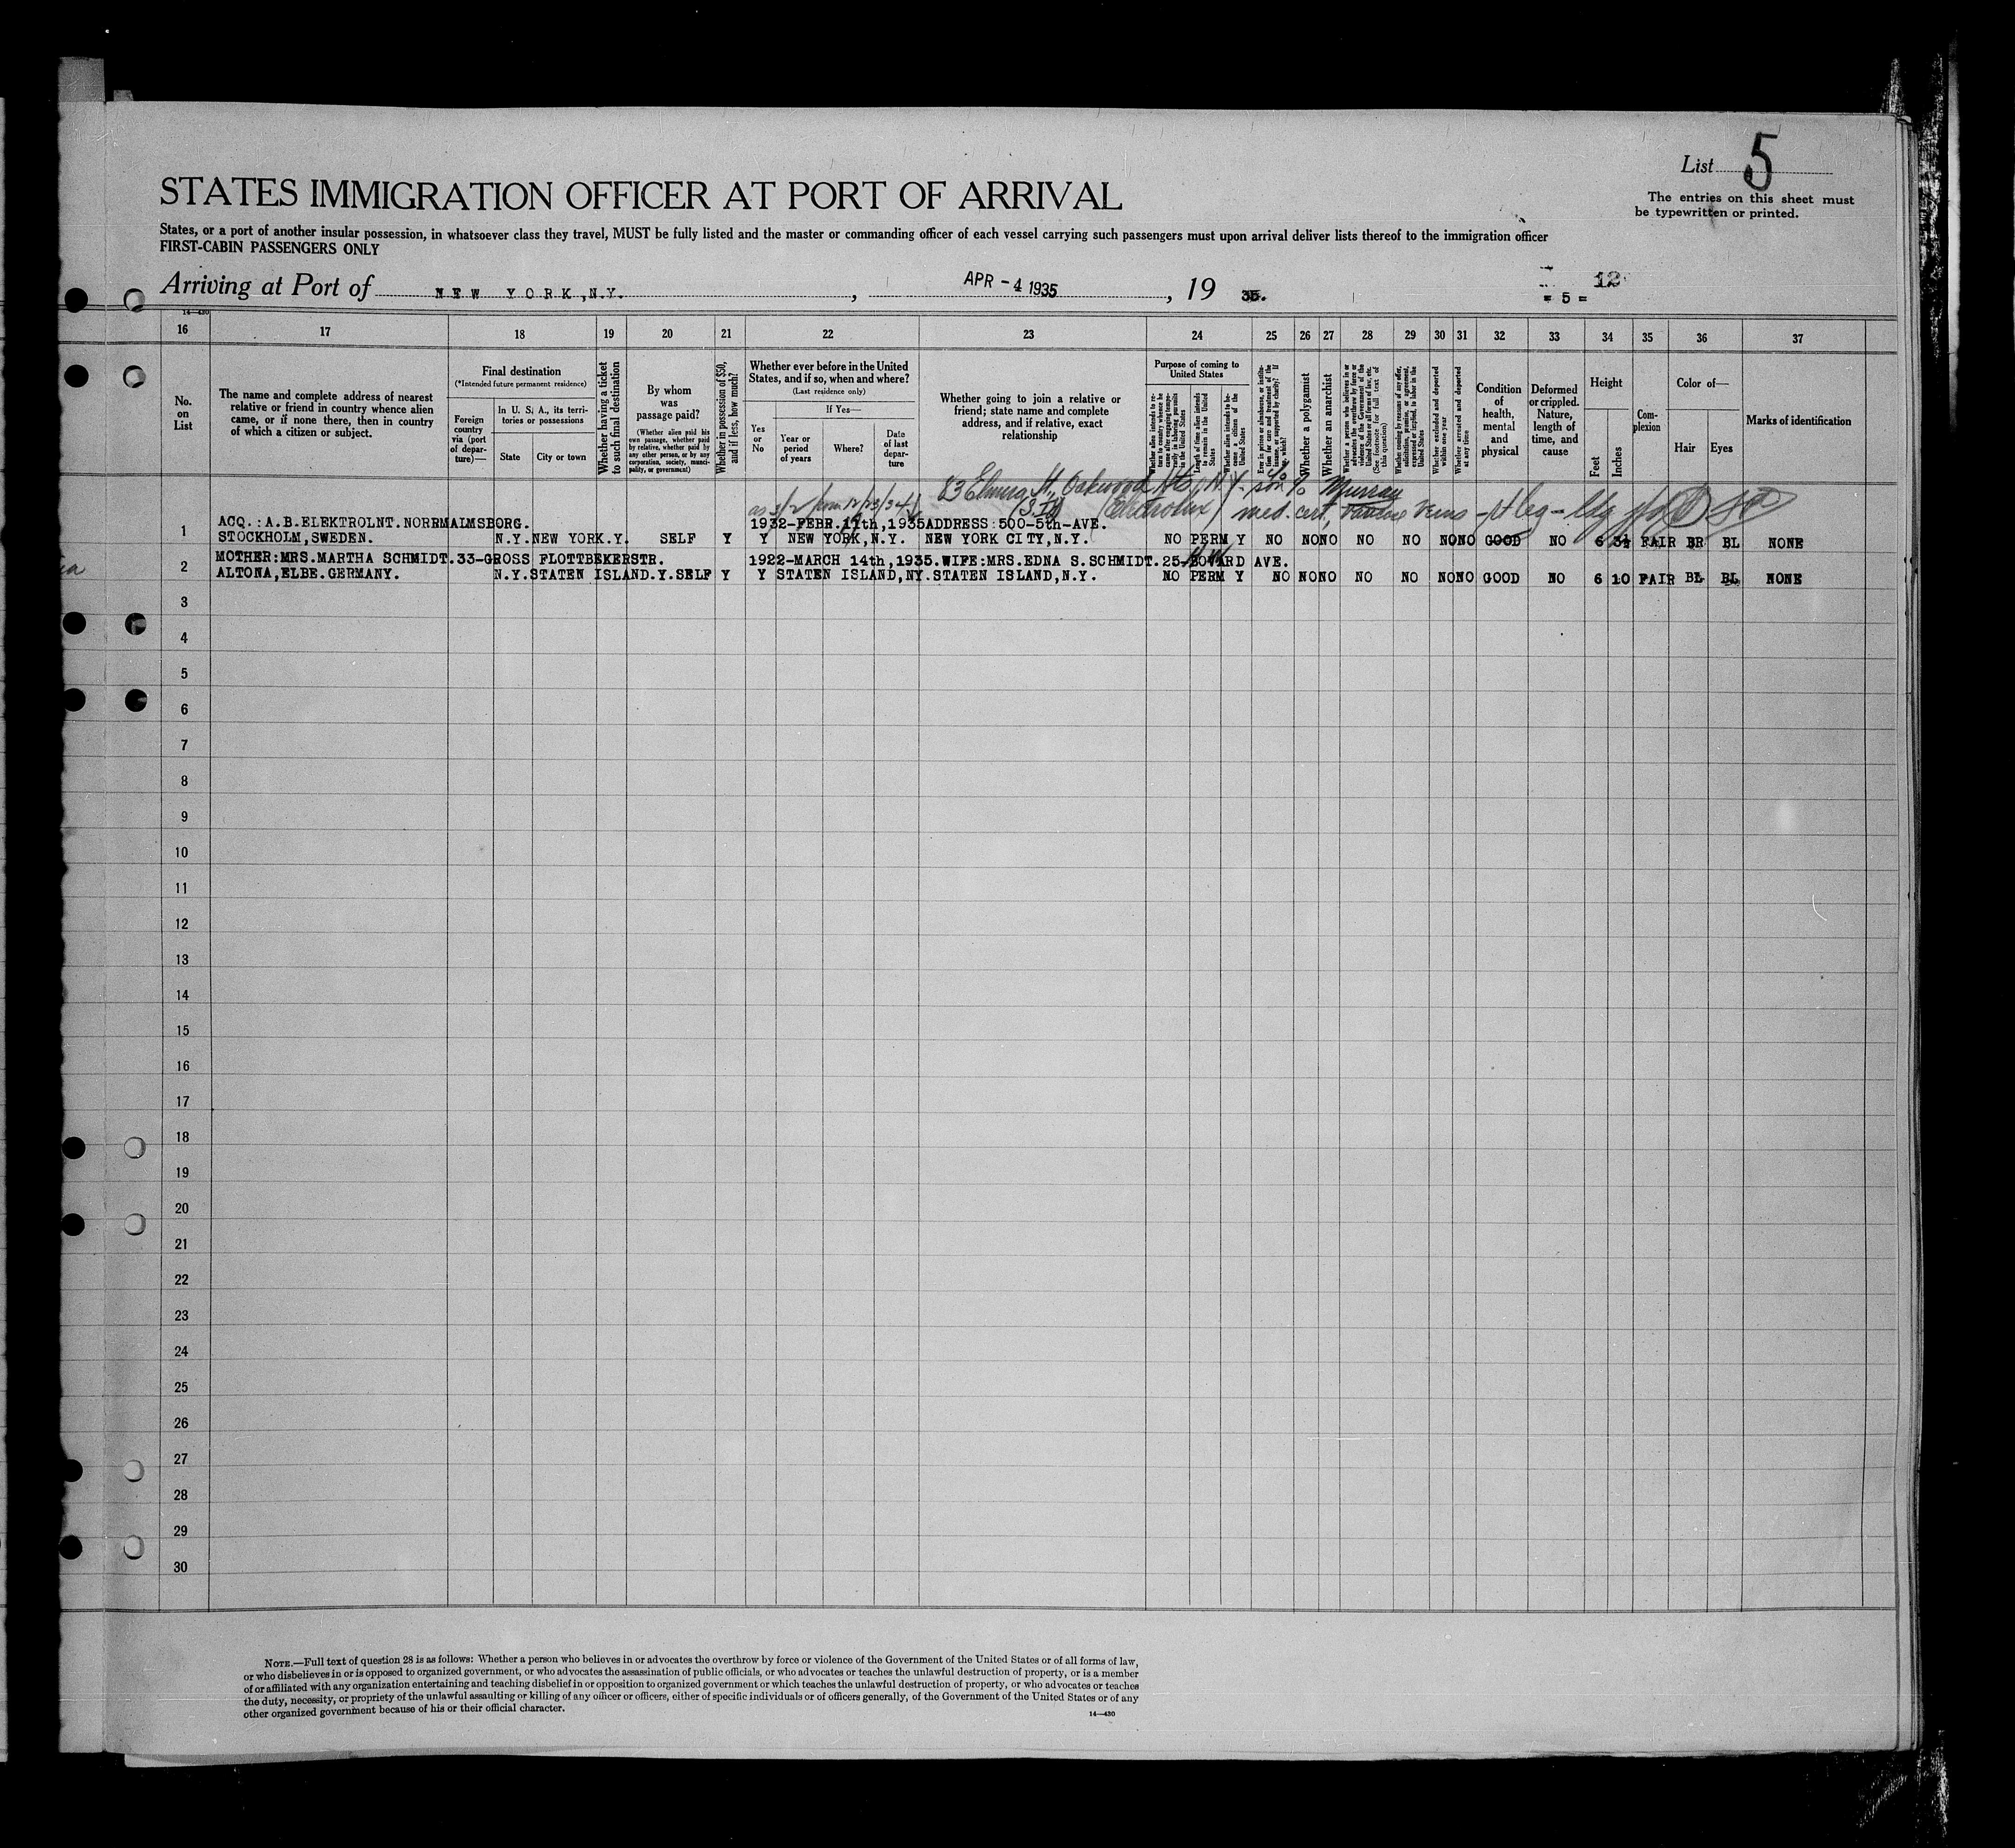 List 5
The entries on this sheet must
be typewritten or printed.
STATES IMMIGRATION OFFICER AT PORT OF ARRIVAL
States, or a port of another insular possession, in whatsoever class they travel, MUST be fully listed and the master or commanding officer of each vessel carrying such passengers must upon arrival deliver lists thereof to the immigration officer
FIRST-CABIN PASSENGERS ONLY
Arriving at Port of NEW YORK,N.Y. , APR -4 1935 , 19 35.
12
= 5 =
14—430
16 17 18 19 20 21 22 23 24 25 26 27 28 29 30 31 32 33 34 35 36 37
No.
on
List
The name and complete address of nearest
relative or friend in country whence alien
came, or if none there, then in country
of which a citizen or subject.
Final destination
(*Intended future permanent residence)
Foreign
country
via (port
of depar-
ture)—
In U. S. A., its terri-
tories or possessions
State City or town
Whether having a ticket
to such final destination
By whom
was
passage paid?
(Whether alien paid his
own passage, whether paid
by relative, whether paid by
any other person, or by any
corporation, society, munici-
pality, or government)
Whether in possession of $50,
and if less, how much?
Whether ever before in the United
States, and if so, when and where?
(Last residence only)
Yes
or
No
If Yes—
Year or
period
of years
Where?
Date
of last
depar-
ture
Whether going to join a relative or
friend; state name and complete
address, and if relative, exact
relationship
Purpose of coming to
United States
Whether alien intends to re-
turn to country whence he
came after engaging tempo-
rarily in laboring pursuits
in the United States
Length of time alien intends
to remain in the United
States
Whether alien intends to be-
come a citizen of the
United States
Whether a polygamist
Whether an anarchist
Whether excluded and deported
within one year
Whether arrested and deported
at any time
Condition
of
health,
mental
and
physical
Deformed
or crippled.
Nature,
length of
time, and
cause
Height
Feet
Inches
Com-
plexion
Color of—
Hair Eyes
Marks of identification
83 Elmira St., Oakwood Hts, N.Y. son Murray
(S.I.) (Electrolux) med. cert, veins - leg
1 ACQ.:A.B.ELEKTROLNT.NORRMALMSBORG. 1932-FEBR. 17th,1935 ADDRESS:500-5th-AVE.
STOCKHOLM,SWEDEN. N.Y. NEW YORK.Y. SELF Y Y NEW YORK,N.Y. NEW YORK CITY,N.Y. NO PERM Y NO NO NO NO NO NO NO GOOD NO 6 3½ FAIR BR BL NONE
2 MOTHER:MRS.MARTHA SCHMIDT.33-GROSS FLOTTBEKERSTR. 1922-MARCH 14th,1935.WIFE:MRS.EDNA S.SCHMIDT.25-HOWARD AVE.
ALTONA,ELBE.GERMANY. N.Y.STATEN ISLAND.Y.SELF Y Y STATEN ISLAND,NY.STATEN ISLAND,N.Y. NO PERM Y NO NO NO NO NO NO NO GOOD NO 6 10 FAIR BL BL NONE
3
4
5
6
7
8
9
10
11
12
13
14
15
16
17
18
19
20
21
22
23
24
25
26
27
28
29
30
NOTE.—Full text of question 28 is as follows: Whether a person who believes in or advocates the overthrow by force or violence of the Government of the United States or of all forms of law,
or who disbelieves in or is opposed to organized government, or who advocates the assassination of public officials, or who advocates or teaches the unlawful destruction of property, or is a member
of or affiliated with any organization entertaining and teaching disbelief in or opposition to organized government or which teaches the unlawful destruction of property, or who advocates or teaches
the duty, necessity, or propriety of the unlawful assaulting or killing of any officer or officers, either of specific individuals or of officers generally, of the Government of the United States or of any
other organized government because of his or their official character.
14—430